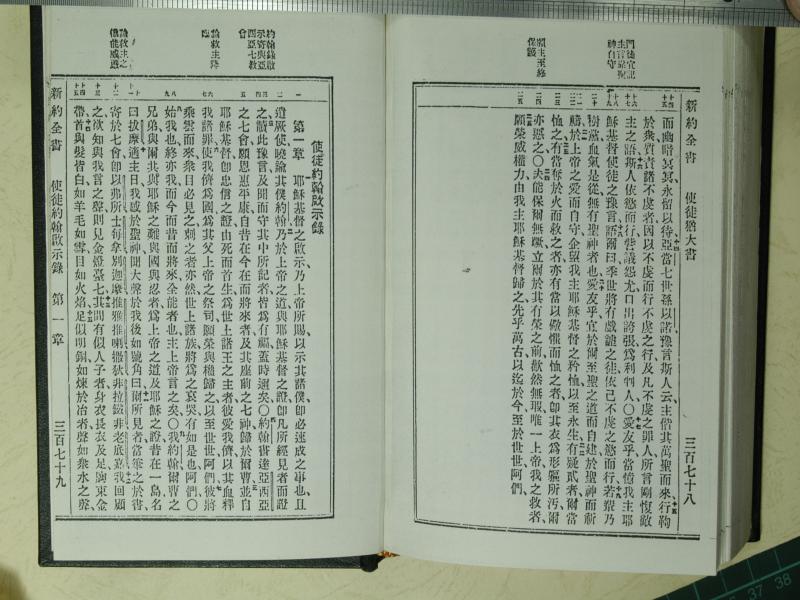 門徒宜記主言謹愼神自守
願主至終保護
新約全書 使徒猶大書 三百七十八
而幽暗冥冥、永留以待、亞當七世孫以諾豫言斯人云、主偕其萬聖而來、行鞫
於衆、責諸不虔者、因以不虔而行不虔之行、及凡不虔之罪人、所言剛愎敵
主之語、斯人依慾而行、訾議怨尤、口出誇張、爲利諂人〇愛友乎、當憶我主耶
穌基督使徒之豫言、語爾曰、季世將有戲謔之徒、依己不虔之慾而行、若輩乃
樹黨、血氣是從、無有聖神者也、愛友乎、宜於爾至聖之道而自建、於聖神而祈
禱、於上帝之愛而自守、企望我主耶穌基督之矜恤、以至永生、有疑貳者、爾當
恤之、有當奪於火而救之者、亦有當以敬懼而恤之者、卽其衣爲形軀所汚、爾
亦惡之〇夫能保爾無蹶、立爾於其有榮之前、歡然無瑕、唯一上帝我之救者、
願榮威權力由我主耶穌基督歸之、先乎萬古、以迄於今、至於世世、阿們、
約翰錄啟示寄與亞西亞七敎會
論救主降臨
論救主之權能威嚴
使徒約翰啟示錄
第一章 耶穌基督之啟示、乃上帝所賜、以示其諸僕卽必速成之事也、且
遣厥使、曉諭其僕約翰、乃於上帝之道、與耶穌基督之證、卽凡所經見者而證
之、讀此豫言、及聞而守其中所記者、皆爲有福、蓋時邇矣〇約翰書達亞西亞
之七會、願恩惠平康、自昔在今在而將來者、及其座前之七神、歸於爾曹、並自
耶穌基督卽忠信之證、由死而首生、爲世上諸王之主者、彼愛我儕、以其血釋
我諸罪、使我儕爲國、爲其父上帝之祭司、願榮與權歸之、以至世世、阿們、彼將
乘雲而來、衆目必見之、刺之者亦然、世上諸族將爲之哀哭、有如是也、阿們〇
始我也、終亦我、而今而昔而將來、全能者也、主上帝言之矣〇我約翰爾曹之
兄弟、與爾共與耶穌之難與國與忍者、爲上帝之道及耶穌之證、昔在一島、名
曰拔摩、適主日、我感於聖神、聞大聲於我後如號角、曰、爾所見者、當筆之於書、
寄於七會、卽以弗所、士每拿、別迦摩、推雅推喇、撒狄、非拉鐵非、老底嘉、我回顧
之、欲知與我言之聲、則見金燈臺七、其間有似人子者、身衣長衣及足、胸束金
帶、首與髮皆白如羊毛、如雪、目如火燄、足似明銅、如煉於冶者、聲如衆水之聲、
新約全書 使徒約翰啟示錄 第一章 三百七十九